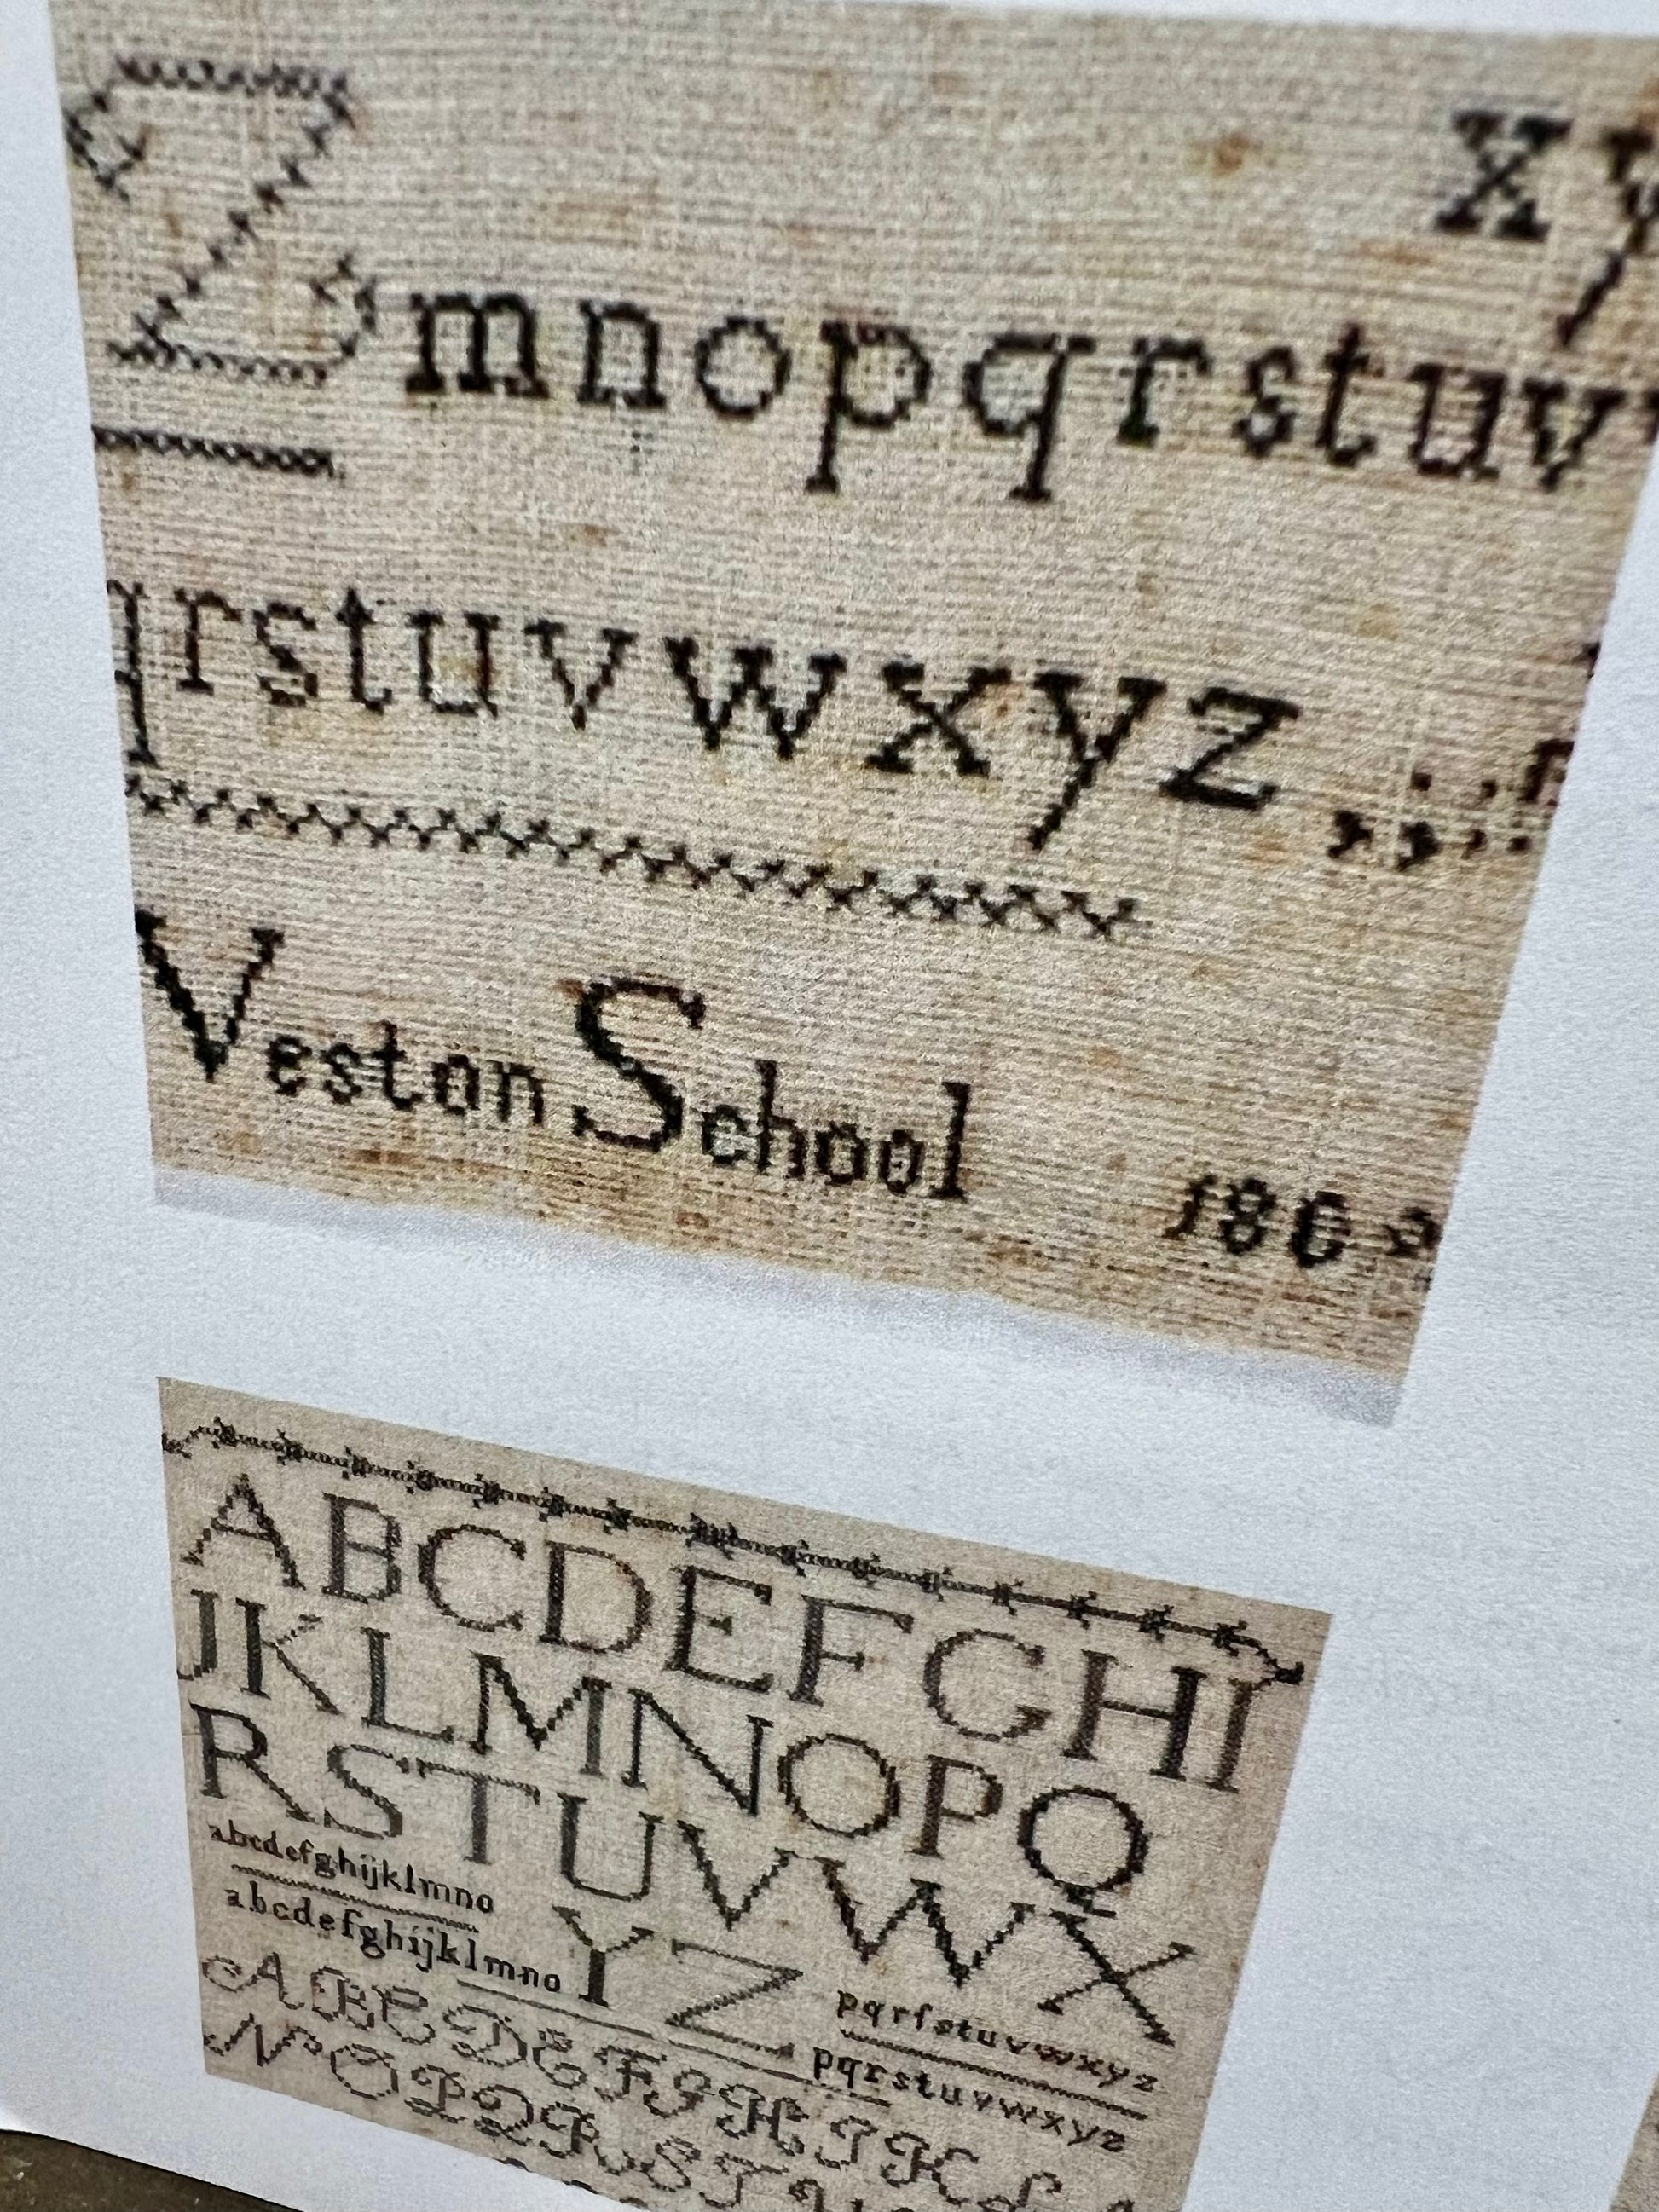 Z
xy
mnopqrstuv
qrstuvwxyz
Veston School 186
ABCDEFGHI
JKLMNOPQ
RSTUVWX
abcdefghijklmno
abcdefghijklmno
YZ
pqrſstuvwxyz
pqrstuvwxyz
ABCDEFGHIK
NOPQRST